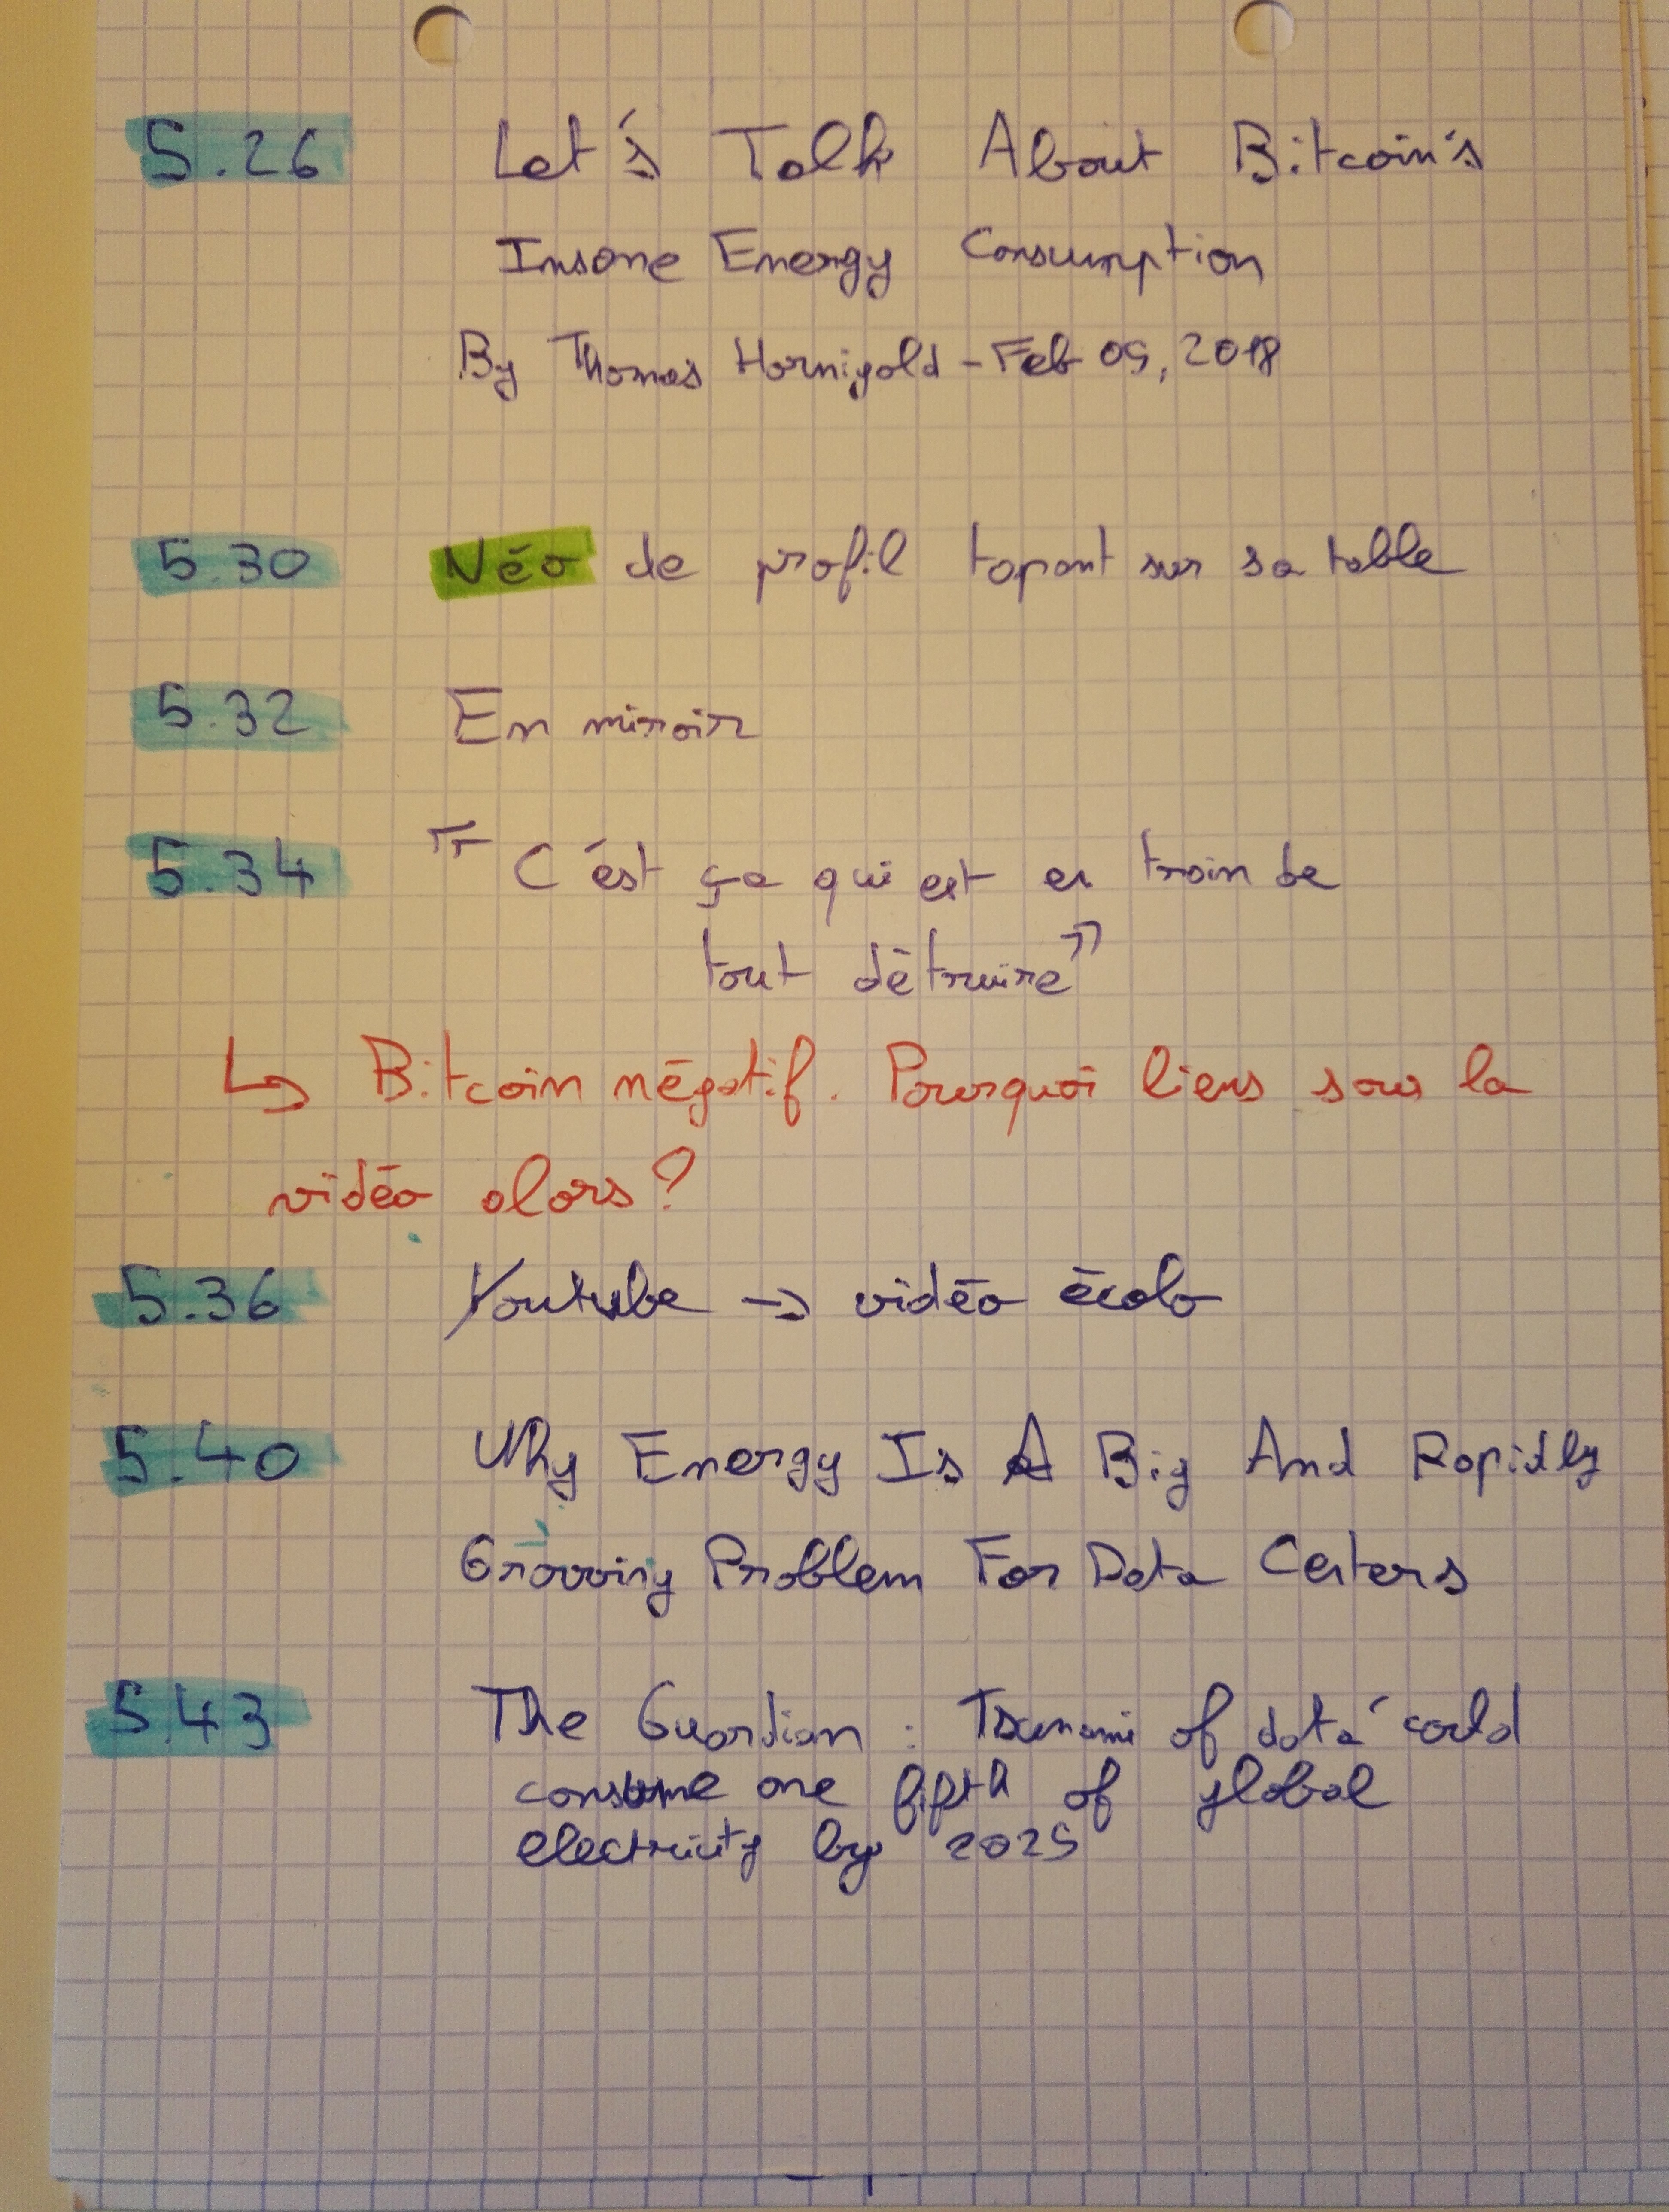 5.26 Let's Talk About Bitcoin's
Insane Energy Consumption
By Thomas Hornigold - Feb 09, 2018
5.30 Néo de profil tapant sur sa table
5.32 En miroir
5.34 "C'est ça qui est en train de
tout détruire"
↳ Bitcoin négatif. Pourquoi liens sous la
vidéo alors?
5.36 Youtube → vidéo écolo
5.40 Why Energy Is A Big And Rapidly
Growing Problem For Data Centers
5.43 The Guardian : Tsunami of data' could
consume one fifth of global
electricity by 2025